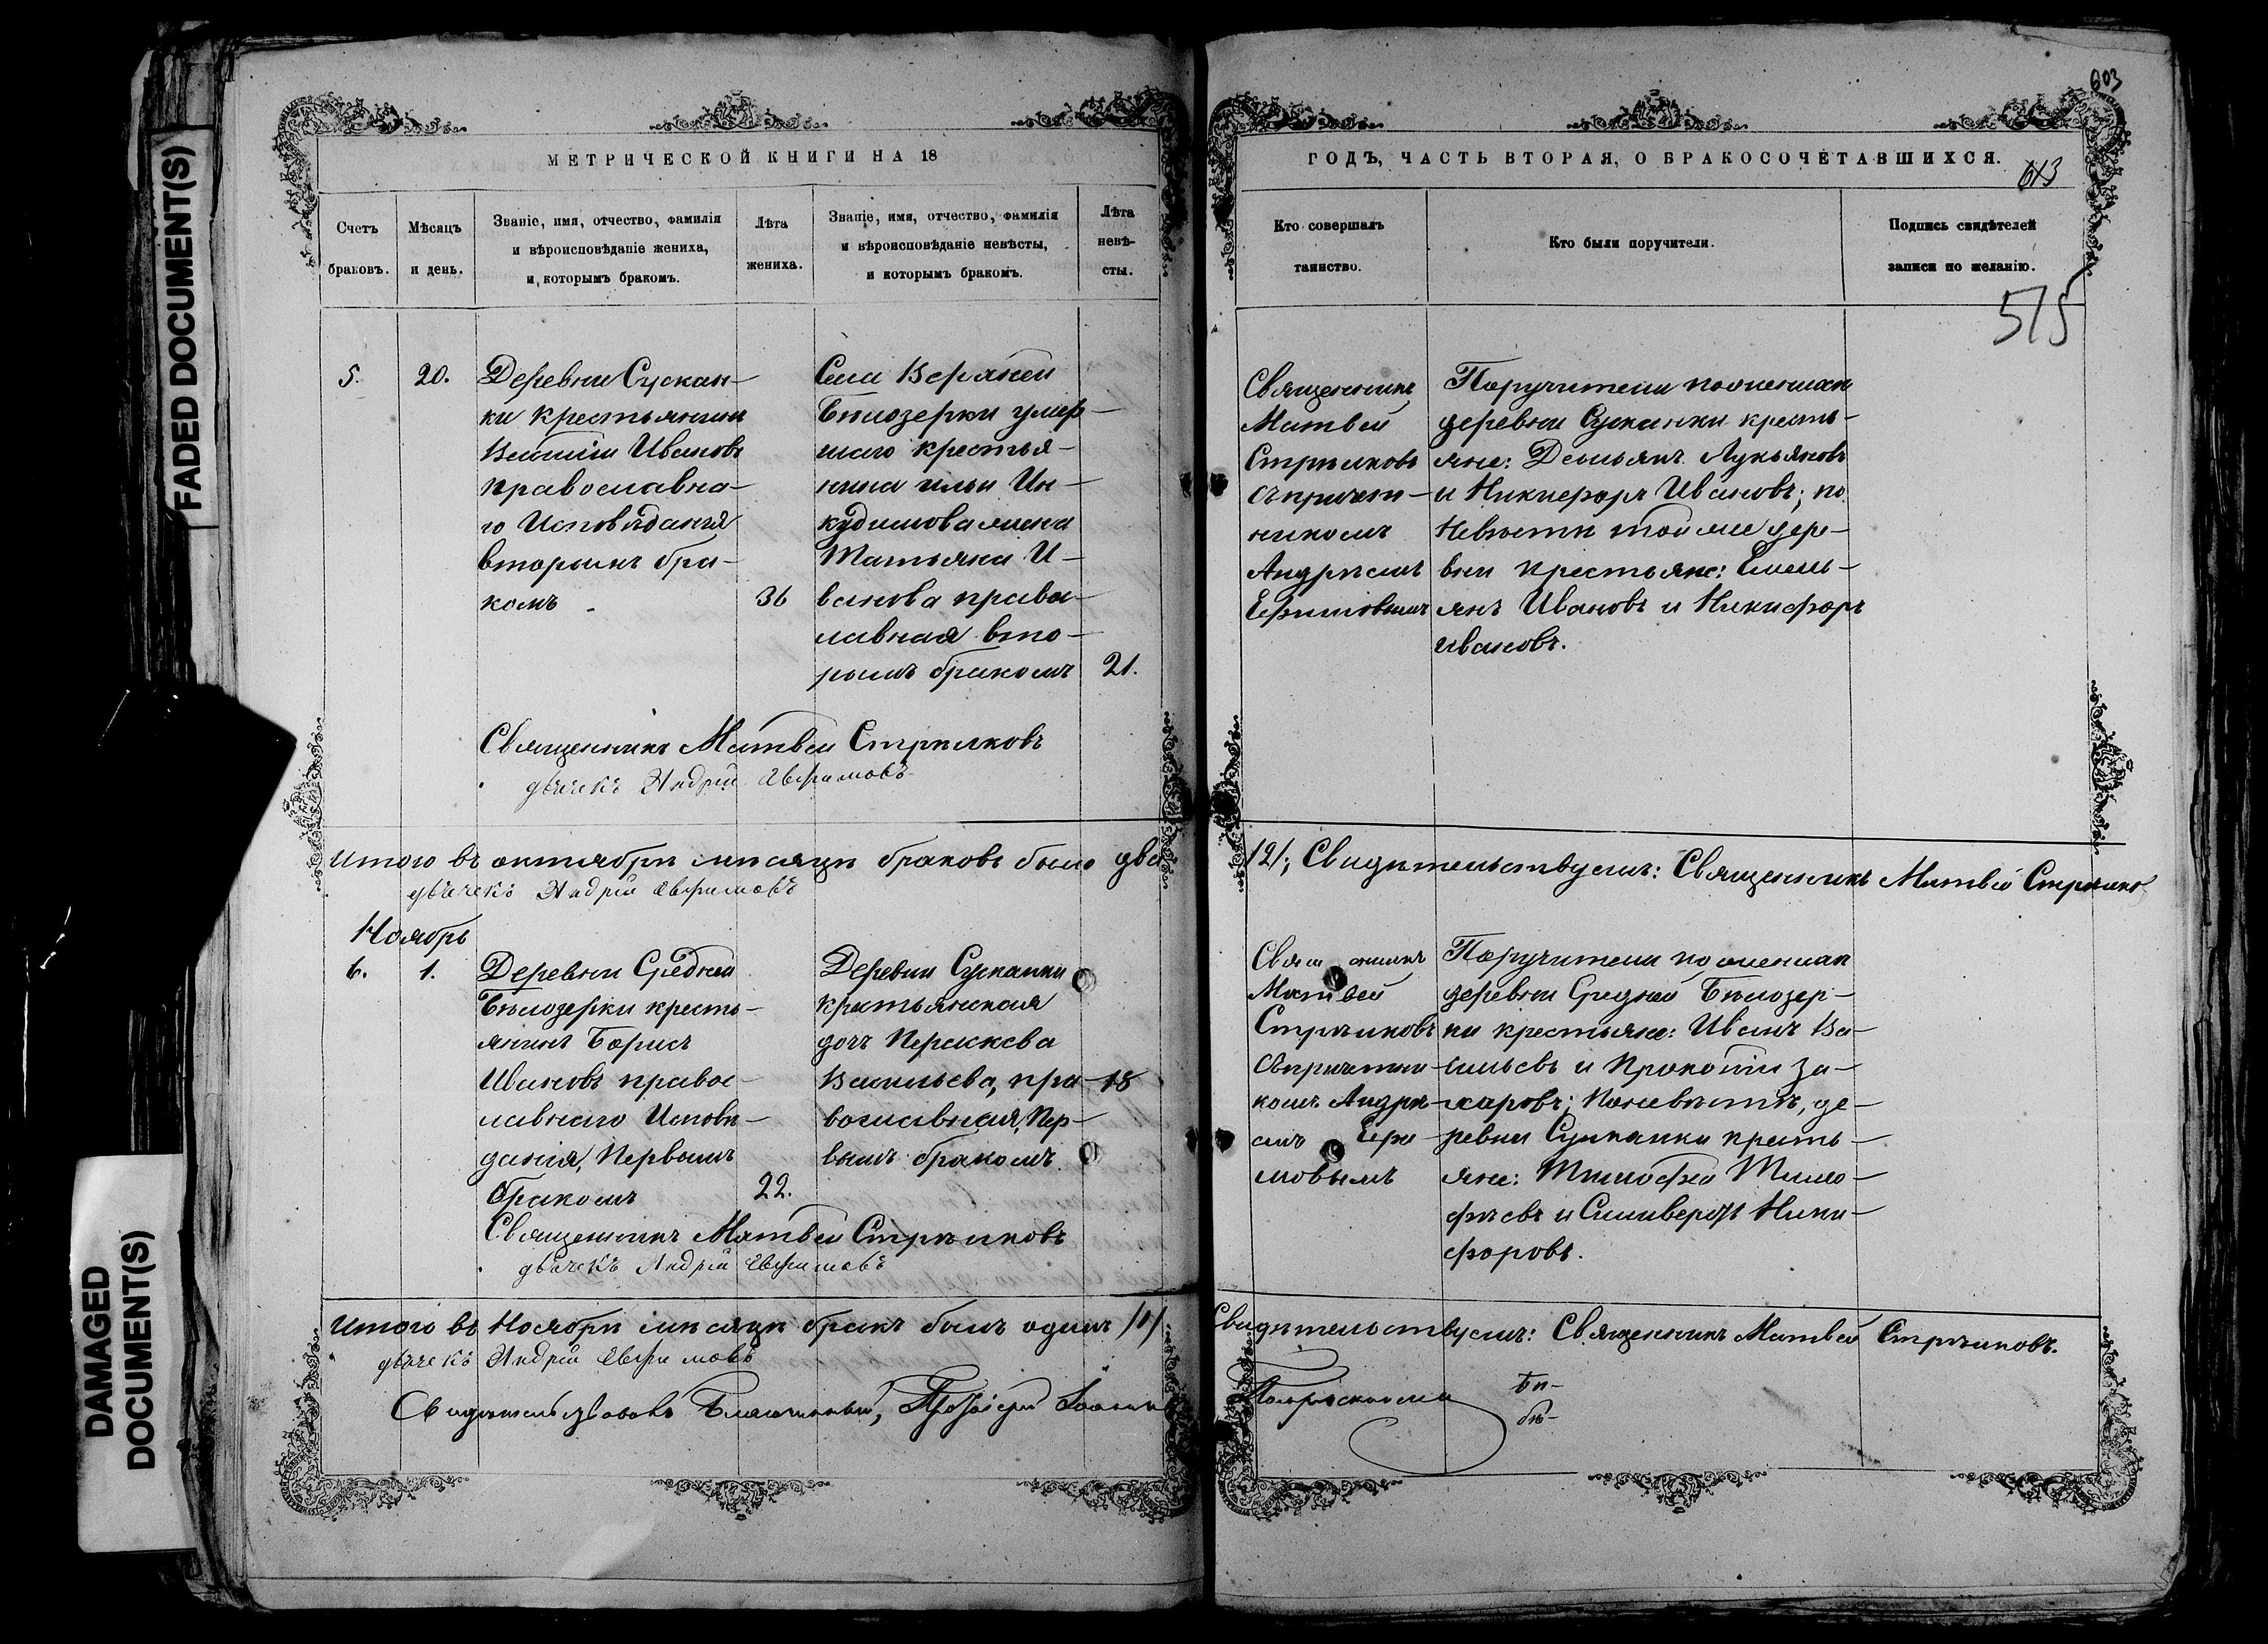 FADED DOCUMENT(S)
DAMAGED DOCUMENT(S)
603
МЕТРИЧЕСКОЙ КНИГИ НА 18
ГОДЪ, ЧАСТЬ ВТОРАЯ, О БРАКОСОЧЕТАВШИХСЯ.
613
Счетъ
браковъ.
Мѣсяцъ
и день.
Званіе, имя, отчество, фамилія
и вѣроисповѣданіе жениха,
и которымъ бракомъ.
Лѣта
жениха.
Званіе, имя, отчество, фамилія
и вѣроисповѣданіе невѣсты,
и которымъ бракомъ.
Лѣта
невѣ-
сты.
Кто совершалъ
таинство.
Кто были поручители.
Подпись свидѣтелей
записи по желанію.
575
5.
20.
Деревни Сускан-
ки крестьянинъ
Ивановъ
православна-
го Исповѣданія
вторымъ бра-
комъ
36
Села Верхней
Бѣлозерки умер-
шаго крестья-
нина Ильи Ин-
кудимова жена
Татьяна И-
ванова право-
лавная вто-
рымъ бракомъ
21.
Священникъ
Матвей
Стрѣлковъ
съ причет-
никомъ
Андреемъ
Ефимовымъ
Поручители по женихѣ
деревни Сусканки кресть-
яне: Демьянъ Лукьяновъ
и Никифоръ Ивановъ; по
Невѣсти той же дере-
вни крестьяне: Емель-
янъ Ивановъ и Никифоръ
Ивановъ.
Священникъ Матвей Стрѣлковъ
дьячекъ Андрей Евфимовъ
Итого въ октябрѣ мѣсяцѣ браковъ было два
/2/; Свидѣтельствуемъ: Священникъ Матвей Стрѣлко
дьячекъ Андрей Евфимовъ
Ноябрь
6.
1.
Деревни Средней
Бѣлозерки кресть-
янинъ Борисъ
Ивановъ правос-
лавнаго Исповѣ-
данія, Первымъ
бракомъ
22.
Деревни Сусканки
крестьянская
дочь Пераскева
Васильева, пра-
вославная, Пер-
вымъ бракомъ.
18
Матвей
Стрѣлковъ
съ причетни-
комъ Андре-
емъ Ефи
мовымъ
Поручители по женихѣ
деревни Средней Бѣлозер-
ки крестьяне: Иванъ Ва-
сильевъ и Прокопій За-
харовъ; По невѣстѣ, де-
ревни Сусканки кресть-
яне: Тимофей Тимо-
фѣевъ и Селиверстъ Ники-
форовъ.
Священникъ Матвей Стрѣлковъ
дьячекъ Андрей Евфимовъ
Итого въ Ноябрѣ мѣсяцѣ бракъ былъ одинъ /1/
Свидѣтельствуемъ: Священникъ Матвей Стрѣлковъ.
дьячекъ Андрей Евфимовъ
Свидѣтельствовалъ Благочинный,